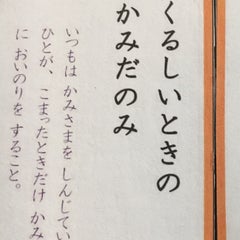 くるしいときの
かみだのみ
いつもは かみさまを しんじてい
ひとが、こまったときだけ かみ
に おいのりを すること。